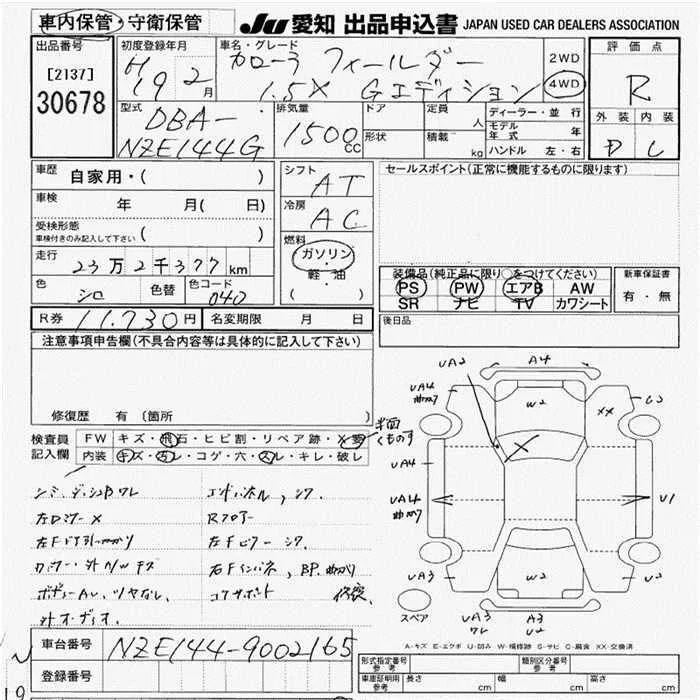 車内保管・守衛保管
JU 愛知 出品申込書 JAPAN USED CAR DEALERS ASSOCIATION
出品番号
[2137]
30678
初度登録年月
H19 2月
車名・グレード
カローラ フィールダー
1.5X Gエディション
2WD
4WD
評価点
R
外装 内装
D C
型式
DBA-
NZE144G
排気量
1500cc
ドア
形状
定員 人
積載 kg
ディーラー・並行
モデル年式 年
ハンドル 左・右
車歴
自家用・( )
車検
年 月( 日)
受検形態
車検付きのみ記入して下さい ( )
走行
23万2千377km
色
シロ
色替
色コード
040
シフト
AT
冷房
AC
燃料
ガソリン
軽・油
( )
セールスポイント(正常に機能するものに限ります)
装備品(純正品に限り○をつけてください)
PS PW エアB AW
SR ナビ TV カワシート
新車保証書
有・無
R券 11,730円
名変期限 月 日
後日品
注意事項申告欄(不具合内容等は具体的に記入して下さい)
修復歴 有 〔箇所 〕
検査員記入欄
FW キズ・飛石・ヒビ割・リペア跡・X
内装 キズ・汚レ・コゲ・穴・スレ・キレ・破レ
シミ
左Dミラー X
Rフロアー
左Fピラー
外オーディオ
コアサポート
UA2
A4
UA4
曲ガリ
W2
XX
UA4
UA4
曲ガリ
U1
UA3
W2
U2
UA3
ワレ
A3
U2
スペア
A-キズ E-エクボ U-凹み W-補修跡 S-サビ C-腐食 XX-交換済
車台番号
NZE144-9002165
登録番号
形式指定番号 参考
類別区分番号 参考
車庫証明用 参考
長さ cm
幅 cm
高さ cm